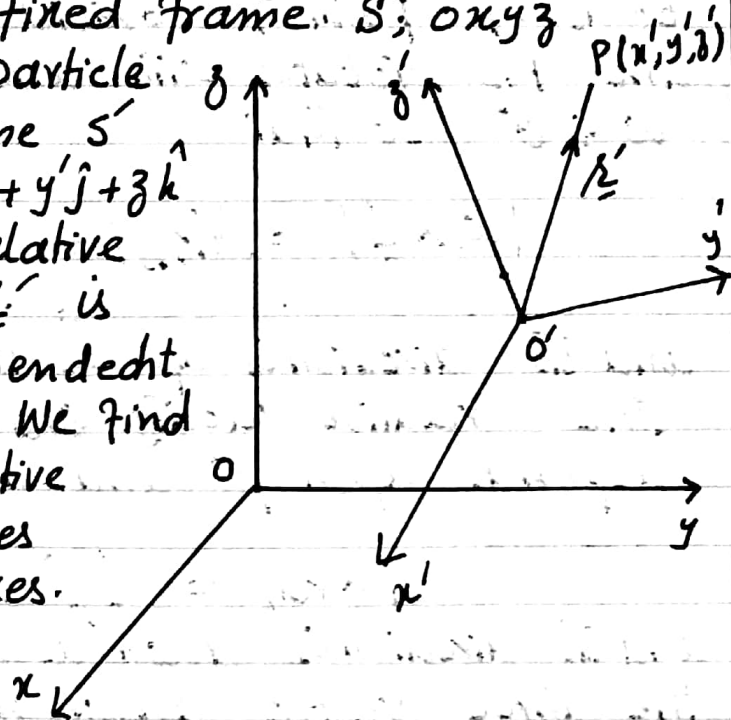 fixed frame. S; oxyz
particle.
ne S′
+ y′ĵ + z k̂
lative
r′ is
endecht
We find
tive
es
xes.
z
z′
P(x′,y′,z′)
r′
y′
O′
O
y
x′
x